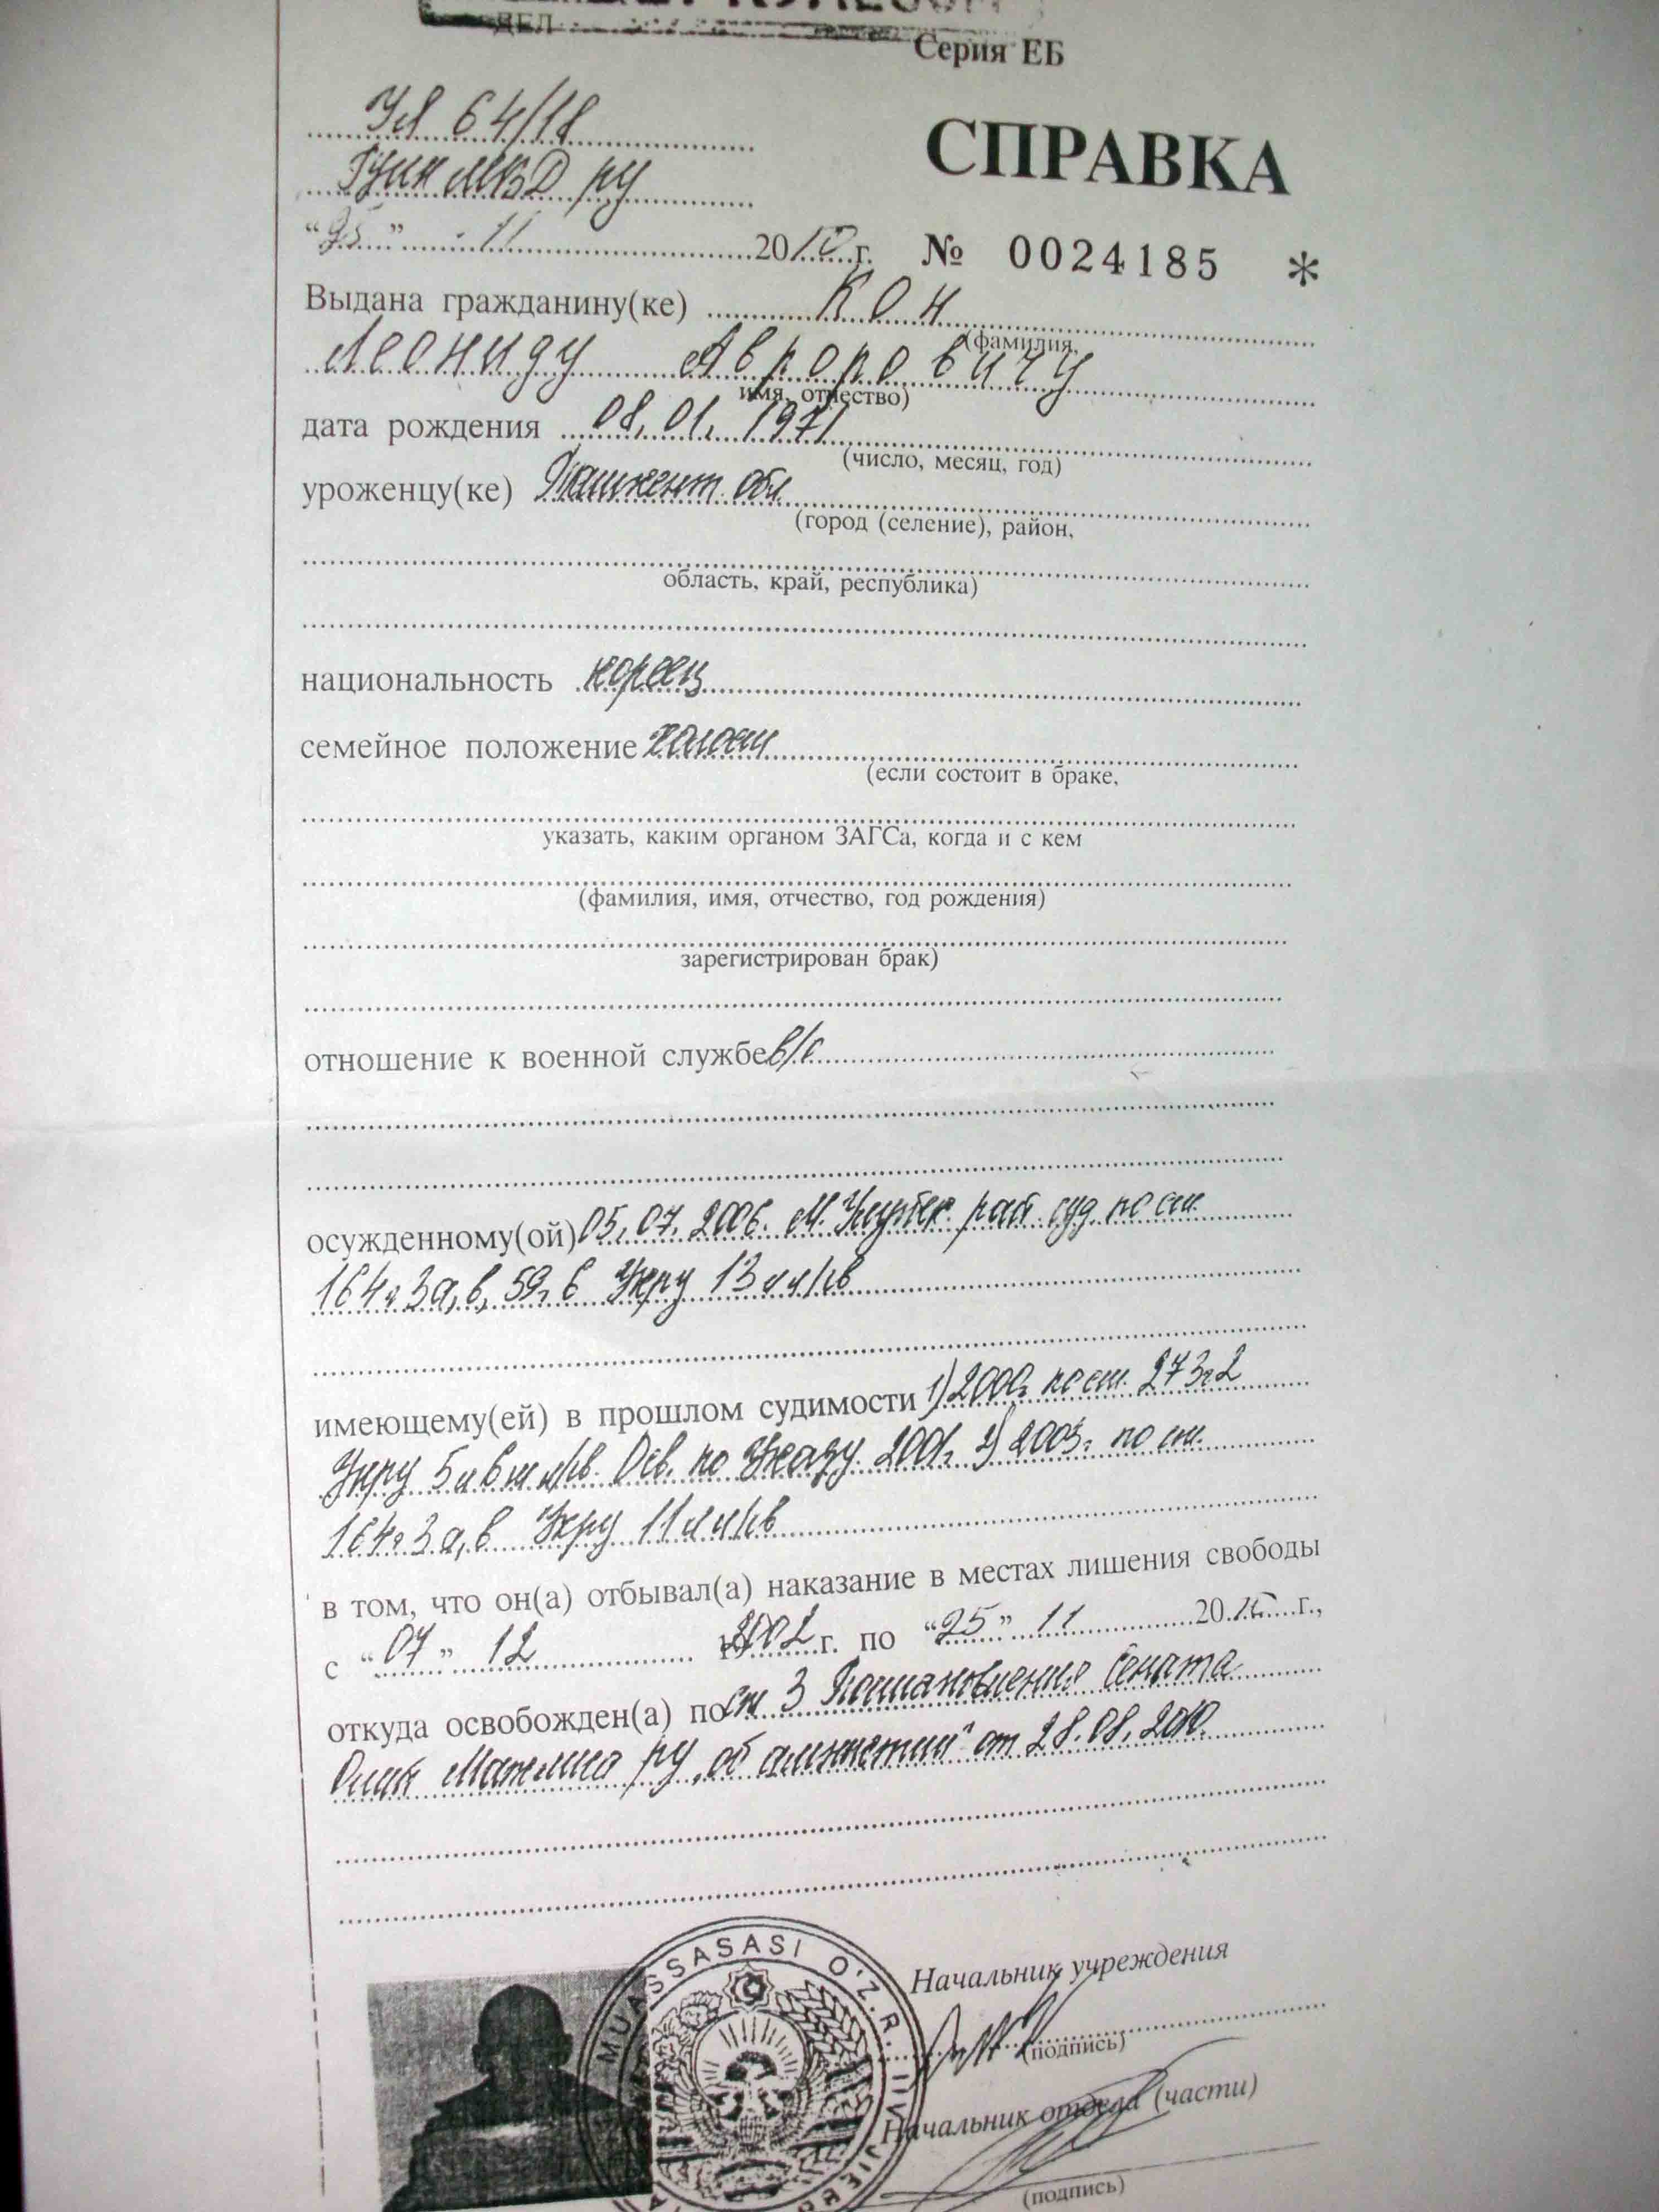 ДЕЛ
Серия ЕБ
УЯ 64/18
ГУИН МВД РУ
СПРАВКА
"25" 11 2010 г. № 0024185 *
Выдана гражданину(ке) Кон
(фамилия,
Леониду Авроровичу
имя, отчество)
дата рождения 08.01.1971
(число, месяц, год)
уроженцу(ке) Ташкент. обл
(город (селение), район,
область, край, республика)
национальность кореец
семейное положение холост
(если состоит в браке,
указать, каким органом ЗАГСа, когда и с кем
(фамилия, имя, отчество, год рождения)
зарегистрирован брак)
отношение к военной службе в/о
осужденному(ой) 05.07.2006. М. рай суд по ст.
164ч3а,в, 59ч6 Укру 13 л л/св
имеющему(ей) в прошлом судимости 1) 2000г по ст. 273ч2
Укру 5л 6м л/св. Осв. по Указу 2001г 2) 2003г по ст.
164ч3а,в Укру 11л л/св
в том, что он(а) отбывал(а) наказание в местах лишения свободы
с "07" 12 2002 г. по "25" 11 2010 г.,
откуда освобожден(а) по ст 3 Постановления Сената
Олий Мажлиса РУ „об амнистии" от 28.08.2010
MUASSASASI O'Z.R. IIV
Начальник учреждения
(подпись)
Начальник отдела (части)
(подпись)